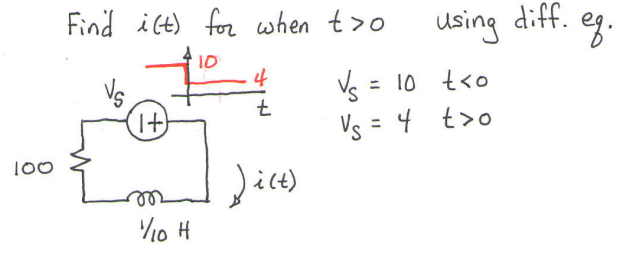 Find i(t) for when t>0 using diff. eq.
10
4
t
Vs
1+
Vs = 10 t<0
Vs = 4 t>0
100
i(t)
1/10 H